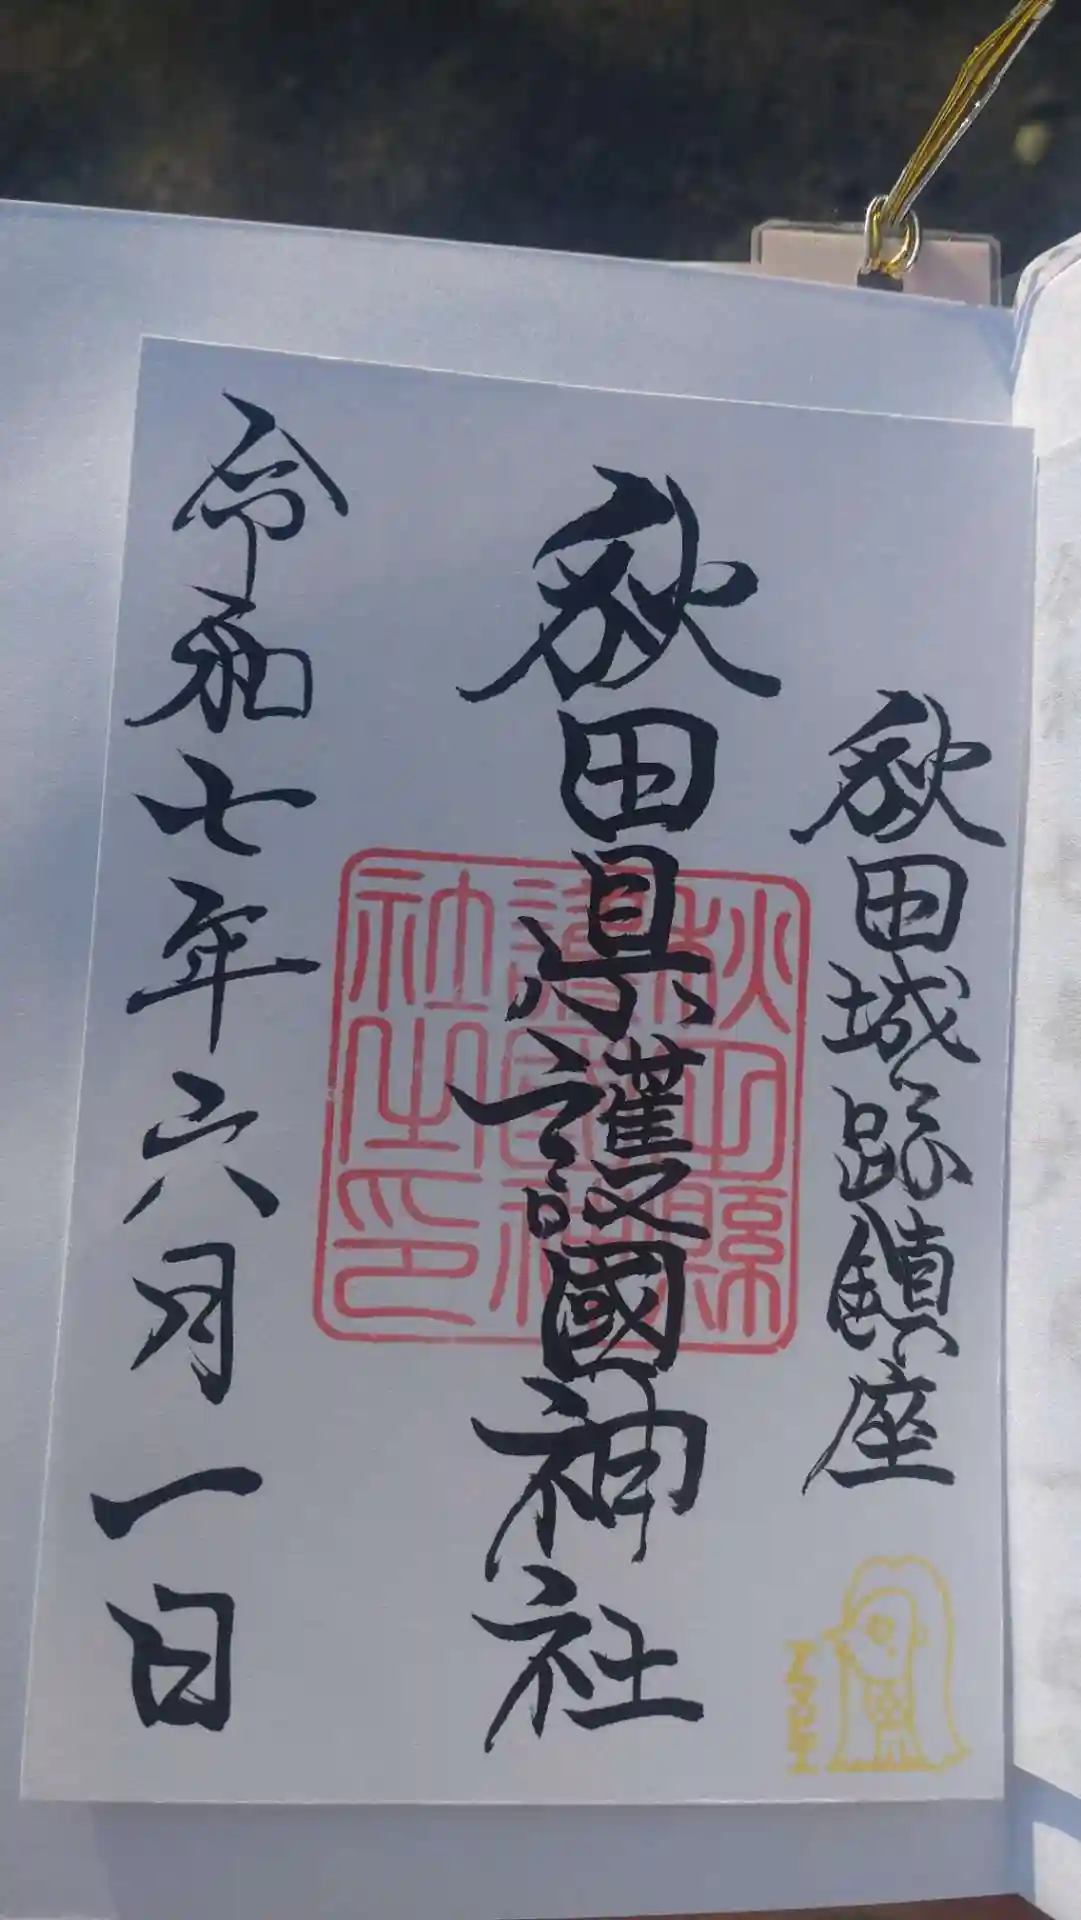 秋田城跡鎮座
秋田県護國神社
秋田縣護國神社之印
令和七年六月一日